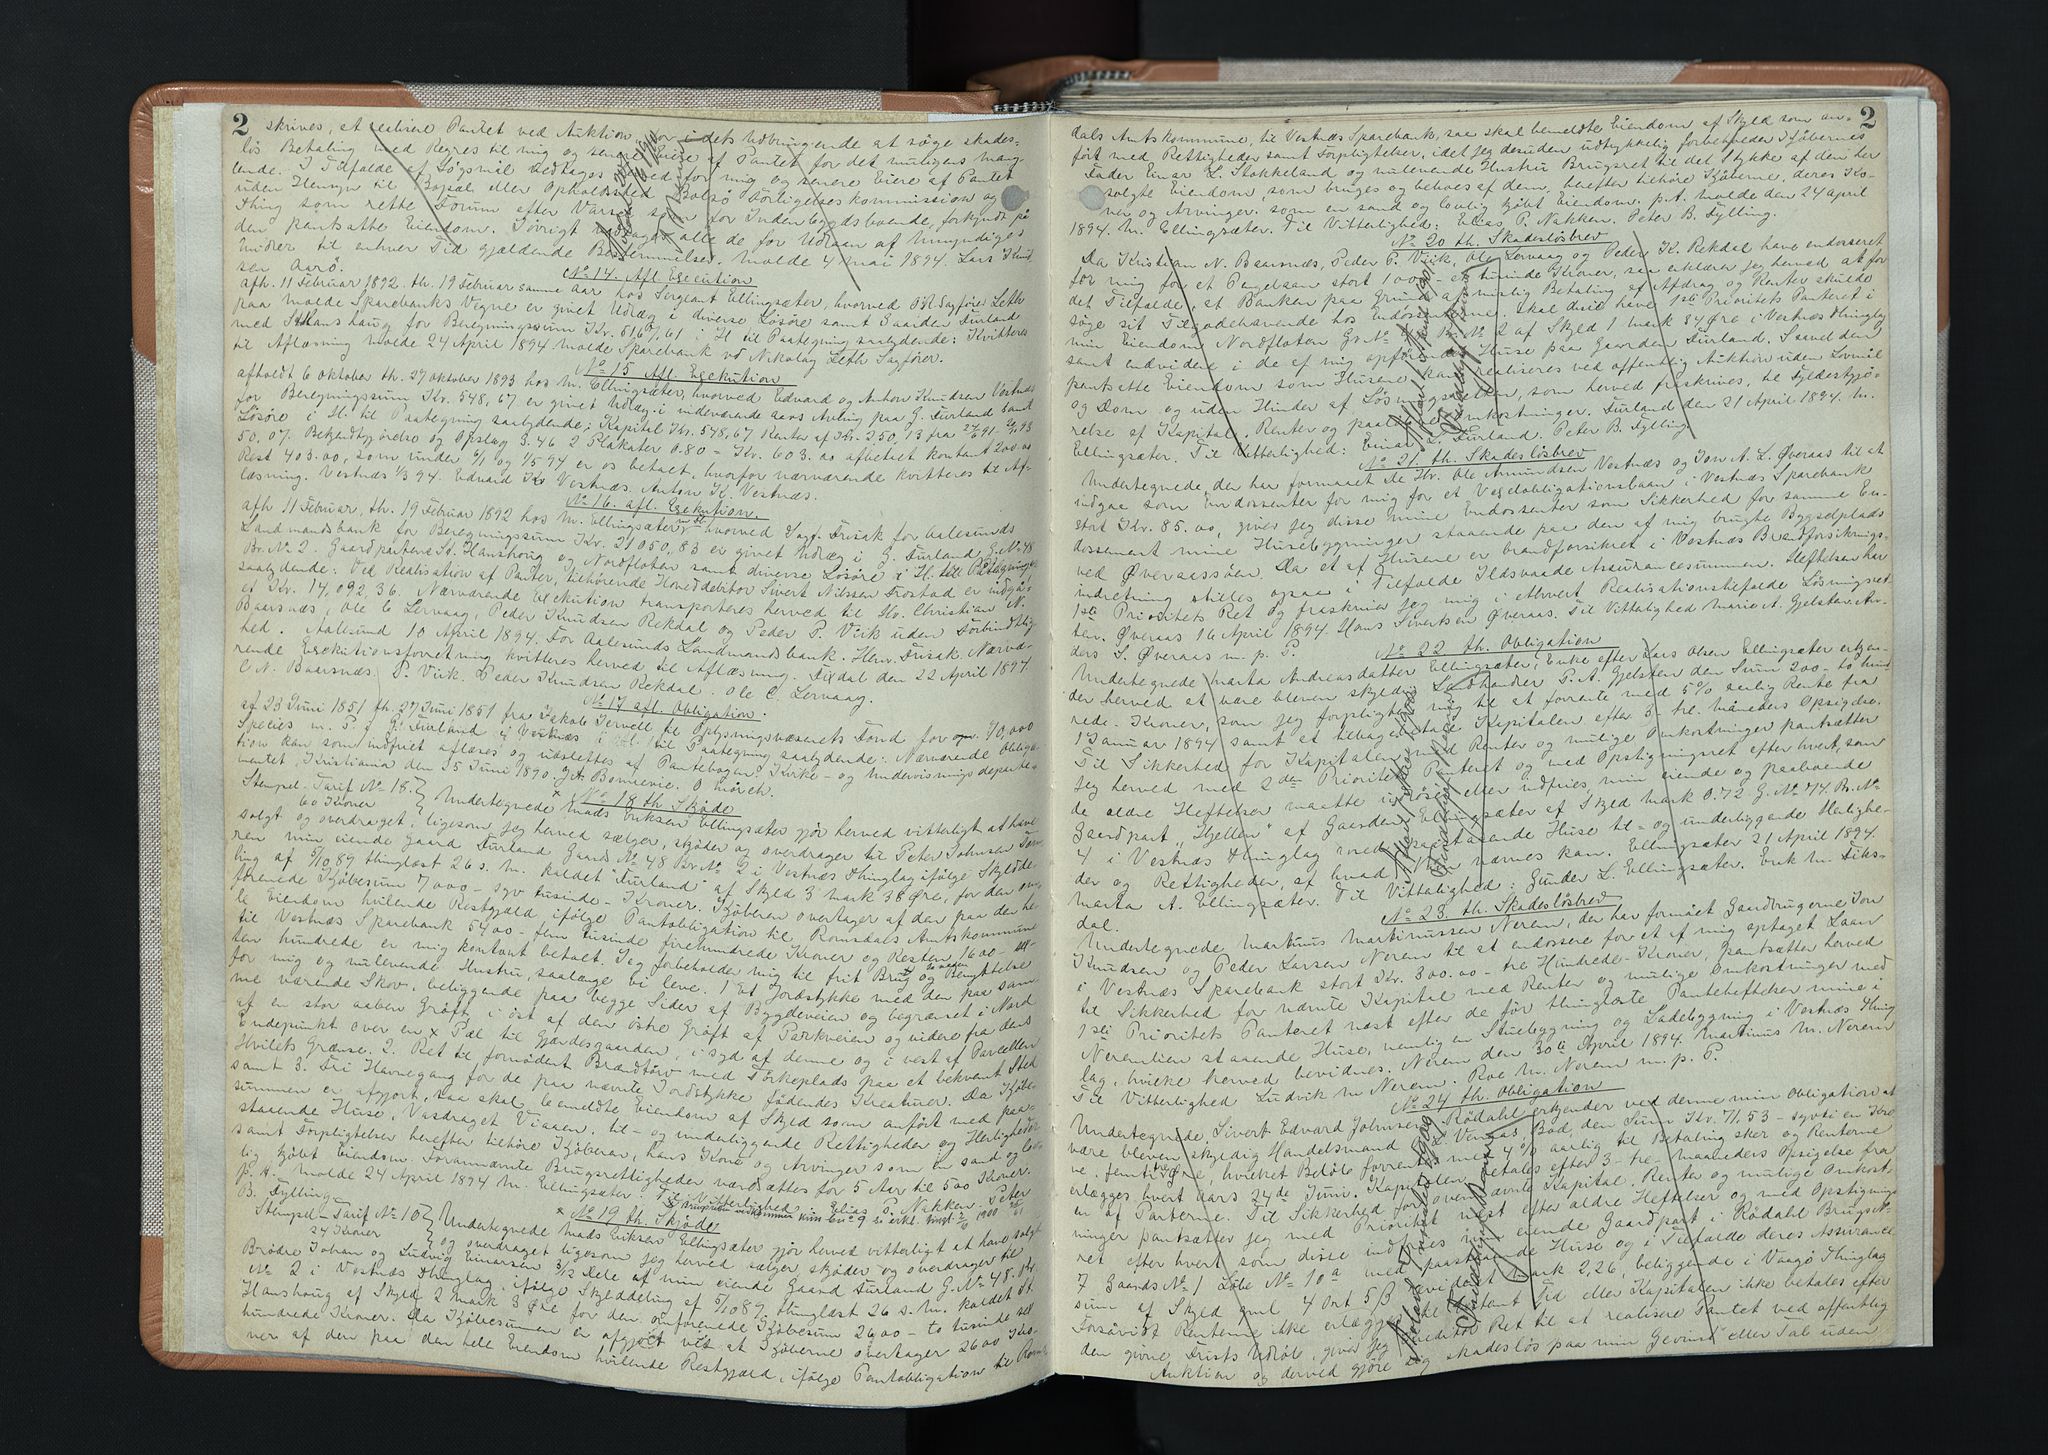 2
skrives, at realisere Pantet ved Auktion for i dets Udbringende at søge skades-
løs Betaling med Regres til mig og senere Eiere af Pantet for det muligens mang-
lende. I Tilfælde af Søgsmål vedtages ved for mig og senere Eiere af Pantet
uden Hensyn til Bopæl eller Opholdssted Bolsø Forligelseskommission og
Thing som rette Forum efter Varsel som for Indenbygdsboende, forkyndt på
den pantsatte Eiendom. Iøvrigt vedtages alle de for Udlaan af Umyndiges
Midler til enhver Tid gjældende Bestemmelser. Molde 4 mai 1894. Lars Knud
sen Aarø.
No 14. Afl. Execution
afh. 11 Februar 1892 th. 19 Februar samme Aar hos Sergeant Ellingsæter, hvorved OR Sagfører Leth
paa Molde Sparebanks Vegne er givet Udlæg i diverse Løsøre samt Gaarden Furland
med St. Hanshaug for Beregningssum Kr. 5161,61 i H. til Paategning saalydende: Kvitteres
til Aflæsning Molde 24 April 1894 Molde Sparebank vd Nikolay Leth Sagfører.
No 15 Afl. Exekution
afholdt 6 oktober th. 27 oktober 1893 hos M. Ellingsæter, hvorved Edvard og Anton Knudsen Vestnæs
for Beregningssum Kr. 548,67 er givet Udlæg i indeværende aars Avling paa G. Furland samt
Løsøre i H. til Paategning saalydende; Kapital Kr. 548,67 Renter af Kr. 250,13 fra
50,07. Bekjendtgjørelse og Opslag 3.46 2 Plakater 0.80 = Kr. 603.00 afbetalt kontant 200.00
Rest 403.00, som under 6/1 og 1/5 94 er os betalt, hvorfor nærværende kvitteres til Af-
læsning. Vestnæs 1/5 94. Edvard Kr Vestnæs. Anton K. Vestnæs.
No 16. afl. Exekution.
afh 11 Februar, th. 19 Februar 1892 hos M. Ellingsæter, hvorved Sagf. Frisak for Aalesunds
Landmandsbank for Beregningssum Kr. 21050,83 er givet Udlæg i G. Furland G.No 48
Br.No 2. Gaardparterne St. Hanshoug og Nordfloten samt diverse Løsøre i H. till Paategning
saalydende: Ved Realisation af Panter, tilhørende Hoveddebitor Sivert Nilssen Frostad er indgåt
et Kr. 14,092,36. Nærværende Exekution transporteres herved til Hr. Christian N.
Baarsnæs, Ole C Lervaag, Peder Knudsen Rekdal og Peder P. Viik uden Forbindtlig
hed. Aalesund 10 April 1894. For Aalesunds Landmandsbank. Herm Frisak. Nærvæ-
rende Exekutionsforretning kvitteres herved til Aflæsning. Fixdal den 22 April 1894
C N. Baarsnæs. P. Viik. Peder Knudsen Rekdal. Ole C. Lervaag.
No 17 afl. Obligation.
af 23 Juni 1851 th. 27 Juni 1851 fra Jakob Jervell til Oplysningsvæsenets Fond for 10,000
Species m. P. i G. Furland i Vestnæs i til Paategning saalydende: Nærværende Obliga-
tion kan som indfriet aflæses og udslettes af Pantebogen. Kirke- og Undervisningsdeparte-
mentet, Kristiania den 15 Juni 1870. J.A. Bonnevie. O Mörch.
No 18 th. Skjøde
Stempel-Tarif No 18.
60 Kroner
Undertegnede Mads Eriksen Ellingsæter gjør herved vitterligt at have
solgt og overdraget, ligesom jeg herved sælger, skjøder og overdrager til Peter Johnsen
ren min eiende Gaard Furland Gaards No 48 Br No 2 i Vestnæs Thinglag ifølge Skjødde-
ling af 5/10 89 thinglæst 26 s. M. kaldet "Furland" af Skyld 3 mark 38 Øre, for den om-
førenede Kjøbesum 7000 - syv tusinde - Kroner. Kjøberen overtager af den paa den he-
le Eiendom hvilende Restgjæld, ifølge Pantobligation til Romsdals Amtskommune
til Vestnæs Sparebank 5400 - fem tusinde firehundrede Kroner og Resten 1600 - sex-
ten hundrede er mig kontant betalt. Jeg forbeholder mig til frit Brug og Benyttelse
for mig og nulevende Hustru, saalænge vi leve. 1 Et Jordstykke med den paa sam-
me værende Skov, beliggende paa begge Sider af Bygdeveien og begrænset i Nord
af en stor aaben Grøft, i øst af den østre Grøft af Parkveien og videre fra dens
Endepunkt over en x Pæl til Gjærdesgaarden, i syd af denne og i vest af Parcellen
Hvilets Grænse. 2. Ret til fornødent Brændtørv med Tørkeplads paa et bekvemt Sted
samt 3. Fri Havnegang for de paa nævnte Jordstykke fødendes Kreaturer. Da Kjøbe-
summen er afgjort, saa skal bemeldte Eiendom af Skyld som anført med paa-
staaende Huse, Vasdraget Viaaen, til- og underliggende Rettigheder og Herligheder
samt Forpligtelser herefter tilhøre Kjøberen, hans Kone og Arvinger som en sand og lov-
lig kjøbt Eiendom. Forannævnte Brugsrettigheder værdsættes for 5 Aar til 500 Kroner.
p. t. Molde 24 April 1894 M. Ellingsæter. Til Vitterlighed: Elias P. Nakken. Peter
B. Fylling
No 19 th. Skjøde
Stempel-Tarif No 10
24 Kroner
Undertegnede Mads Eriksen Ellingsæter gjør herved vitterligt at have solgt
og overdraget ligesom jeg herved sælger skjøder og overdrager til
Brødre Johan og Ludvig Einarsen 2/3 Dele af min eiende Gaard Furland G.No 48. Br.
No 2 i Vestnæs Thinglag, ifølge Skylddeling af 5/10 89 thinglæst 26 s. M. kaldet St.
Hanshoug af Skyld 2 mark 3 Øre for den omforenede Kjøbesum 2600 - to tusinde sex
hundrede Kroner. Da Kjøbesummen er afgjort ved at Kjøberne overtager 2600 Kro-
ner af den paa den hele Eiendom hvilende Restgjæld, ifølge Pantobligation til Roms-
2
dals Amtskommune, til Vestnæs Sparebank, saa skal bemeldte Eiendom af Skyld som an-
ført med Rettigheder samt Forpligtelser, idet jeg desuden udtrykkelig forbeholder Kjøbernes
Fader Einar L. Stokkeland og nulevende Hustru Brugsret til det Stykke af den her
solgte Eiendom, som bruges og beboes af dem, herefter tilhøre Kjøberne, deres Ko-
ner og Arvinger, som en sand og lovlig kjøbt Eiendom. p.t. Molde den 24 april
1894. M. Ellingsæter. Til Vitterlighed: Elias P. Nakken. Peter B. Fylling.
No 20 th. Skadesløsbrev
Da Kristian N. Baarsnæs, Peder P. Viik, Ole Lervaag og Peder K. Rekdal have endosseret
for mig for et Pengelaan stort 1000 - et tusinde Kroner, saa erklærer jeg herved at for
det Tilfælde, at Banken paa Grund af mislig Betaling af Afdrag og Renter skulde
søge sit Tilgodehavende hos Endossenterne, skal disse have 1ste Prioritets Panteret i
min Eiendom Nordfloten Gr No 48 B. No 2 af Skyld 1 mark 84 Øre i Vestnæs Thinglag
samt endvidere i de af mig opførende Huse paa Gaarden Furland. Saavel den
pantsatte Eiendom som Husene kan realiseres ved offentlig Auktion uden Lovmål
og Dom og uden Hinder af Løsningsretten, som herved fraskrives, til Fyldestgjø-
relse af Kapital, Renter og paaløbende Omkostninger. Furland den 21 April 1894. M.
Ellingsæter. Til Vitterlighed: Einar L. Furland. Peter B. Fylling
No 21 th. Skadesløsbrev
Undertegnede, der har formaaet de Hr. Ole Amundsen Vestnæs og Jon A. L. Øveraas til at
indgaa som Endossenter for mig for et Vexelobligationslaan i Vestnæs Sparebank
stort Kr. 85.00, giver jeg disse mine Endossenter som Sikkerhed for samme En-
dossement mine Husebygninger staaende paa den af mig brugte Bygselplads
ved Øveraassøen. Da et af Husene er brandforsikret i Vestnæs Brandforsikrings-
indretning stilles ogsaa i Tilfælde Ildsvaade Assurancesummen. Heftelsen har
1ste Prioritets Ret og fraskriver jeg mig i ethvert Realisationstilfælde Løsningsret-
ten. Øveraas 16 April 1894. Hans Sivertsen Øveraas. Til Vittelighed Marie A. Gjelsten. An-
ders S. Øveraas m. p. P.
No 22 th. Obligation
Undertegnede Marta Andreasdatter Ellingsæter, Enke efter Lars Olsen Ellingsæter erkjen-
der herved at være bleven skyldig Landhandler P. A. Gjelsten den Sum 200 - to hun
rede - Kroner, som jeg forpligter mig til at forrente med 5% aarlig Rente fra
1 Januar 1894 samt at tilbagebetale Kapitalen efter 3 - tre Måneders Opsigelse.
Til Sikkerhed for Kapitalen med Renter og mulige Omkostninger pantsætter
jeg herved med 2den Prioritets Panteret og med Opstigningsret efter hvert, som
de ældre Heftelser maatte indløses eller indfries, min eiende og paaboende
Gaardpart "Hjellen" af Gaarden Ellingsæter af Skyld Mark 0.72 G.No 74. Br.No
4 i Vestnæs Thinglag med paastaaende Huse til- og underliggende Herlighe-
der og Rettigheder, af hvad Navn nævnes kan. Ellingsæter 21 April 1894.
Marta A. Ellingsæter. Til Vitterlighed: Gunder L. Ellingsæter. Erik M. Fiks-
dal.
No 23. th. Skadesløsbrev
Undertegnede Martinus Martinussen Nerem, der har formået Gaardbrugerne Jon
Knudsen og Peder Larsen Nerem til at endossere for et af mig optaget Laan
i Vestnæs Sparebank stort Kr. 300.00 - tre Hundrede - Kroner, pantsætter herved
til Sikkerhed for nævnte Kapital med Renter og mulige Omkostninger med
1ste Prioritets Panteret næst efter de før thinglæste Panteheftelser mine i
Neremlien staaende Huse, nemlig en Stuebygning og Ladebygning i Vestnæs Thing
lag, hvilke herved bevidnes. Nerem den 30te April 1894 Martinus M. Nerem
Til Vitterlighed Ludvik M Nerem. Roe M. Nerem m. p. P.
No 24 th. Obligation
Undertegnede Sivert Edvard Johnsen Rødahl erkjender ved denne min Obligation at
være bleven skyldig Handelsmand L. Vennæs, Bod, den Sum Kr. 71,53 - syvti en Kro
ne, femtitre Øre, hvilket Beløb forrentes med 4% aarlig til Betaling sker og Renterne
erlægges hvert Aars 24de Juni. Kapitalen betales efter 3 - tre - Maaneders Opsigelse fra
en af Parterne. Til Sikkerhed for ovennævnte Kapital, Renter og mulige Omkost-
ninger pantsætter jeg med Prioritet næst efter ældre Heftelser og med Opstignings
ret efter hvert som disse indfries min eiende Gaardpart i Rødahl Brugs No
7 Gaards No 1 Løbe No 10a med paastaaende Huse og i Tilfælde deres Assurance
sum af Skyld gml 4 Ort 5 β revideret Mark 2,26, beliggende i Vaagø Thinglag
Forsåvidt Renterne ikke erlægges til bestemt Tid eller Kapitalen ikke betales efter
den givne Frists Udløb, giver jeg Kreditor Ret til at realisere Pantet ved offentlig
Auktion og derved gjøre sig skadesløs paa min Gevinst eller Tab uden